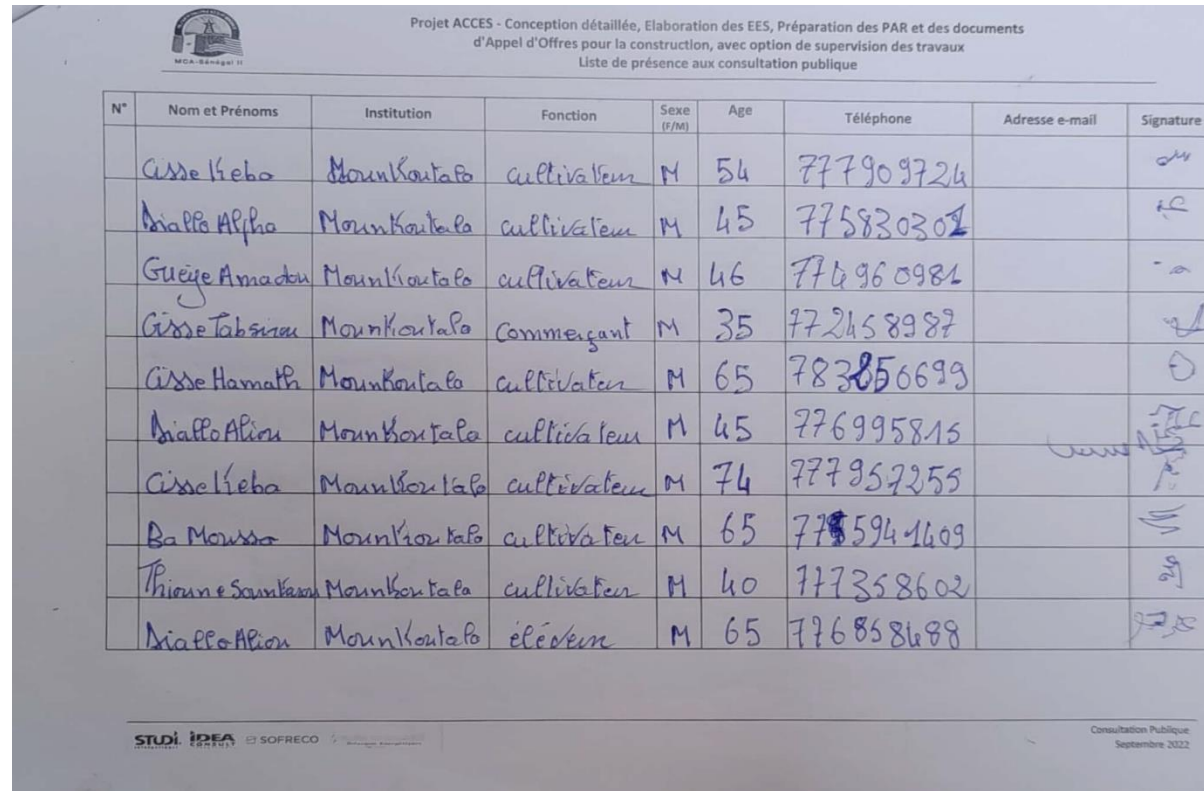 MCA-Sénégal II
Projet ACCES - Conception détaillée, Elaboration des EES, Préparation des PAR et des documents
d'Appel d'Offres pour la construction, avec option de supervision des travaux
Liste de présence aux consultation publique
N° Nom et Prénoms Institution Fonction Sexe (F/M) Age Téléphone Adresse e-mail Signature
Cisse Keba Mounkoutala cultivateur M 54 777909724
Diallo Alpha Mounkoutala cultivateur M 45 775830301
Gueye Amadou Mounkoutala cultivateur M 46 774960981
Cisse Tabsirou Mounkoutala Commerçant M 35 772458987
Cisse Hamath Mounkoutala cultivateur M 65
Diallo Aliou Mounkoutala cultivateur M 45 776995815
Cisse Keba Mounkoutala cultivateur M 74 777957255
Ba Moussa Mounkoutala cultivateur M 65
Thioune Mounkoutala cultivateur M 40 777358602
Diallo Aliou Mounkoutala éléveur M 65 776858488
STUDI IDEA CONSULT SOFRECO
Consultation Publique
Septembre 2022